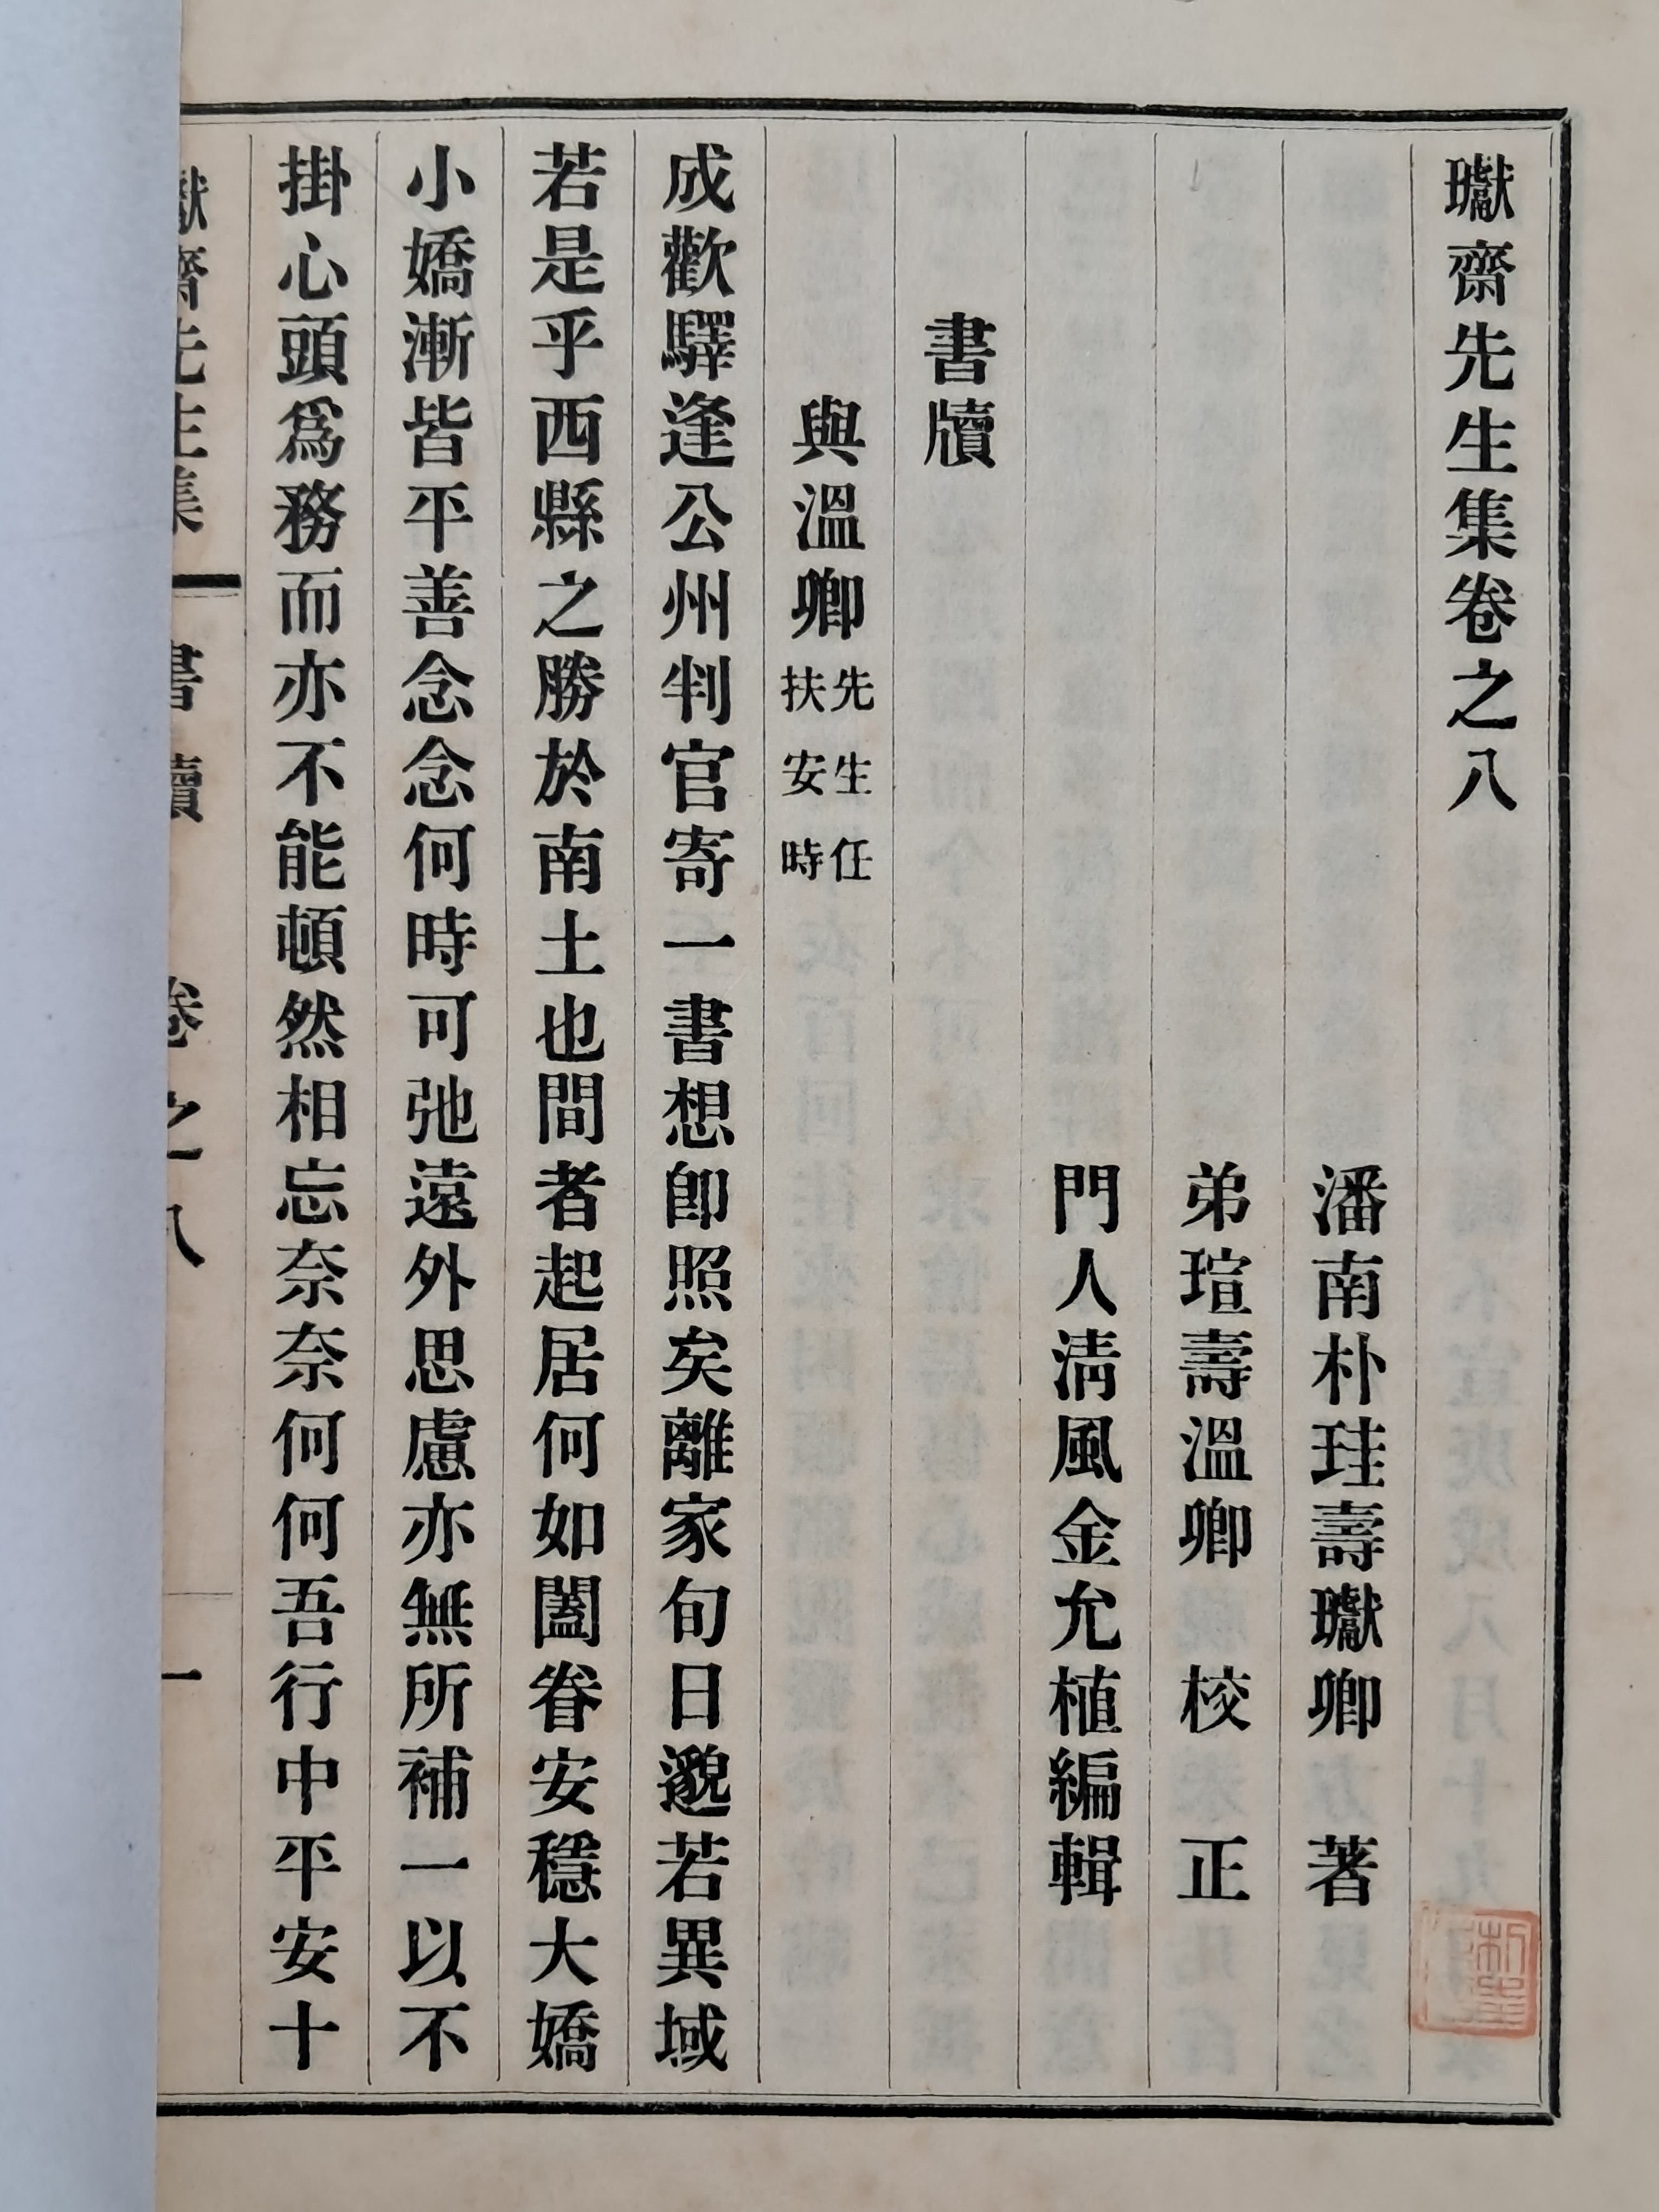 瓛齋先生集卷之八
潘南朴珪壽瓛卿 著
弟瑄壽溫卿 校 正
門人淸風金允植編輯
書牘
與溫卿先生任扶安時
成歡驛逢公州判官寄一書想卽照矣離家旬日邈若異域
若是乎西縣之勝於南土也間者起居何如闔眷安穩大嬌
小嬌漸皆平善念念何時可弛遠外思慮亦無所補一以不
掛心頭爲務而亦不能頓然相忘奈奈何何吾行中平安十
瓛齋先生集 書牘 卷之八 一